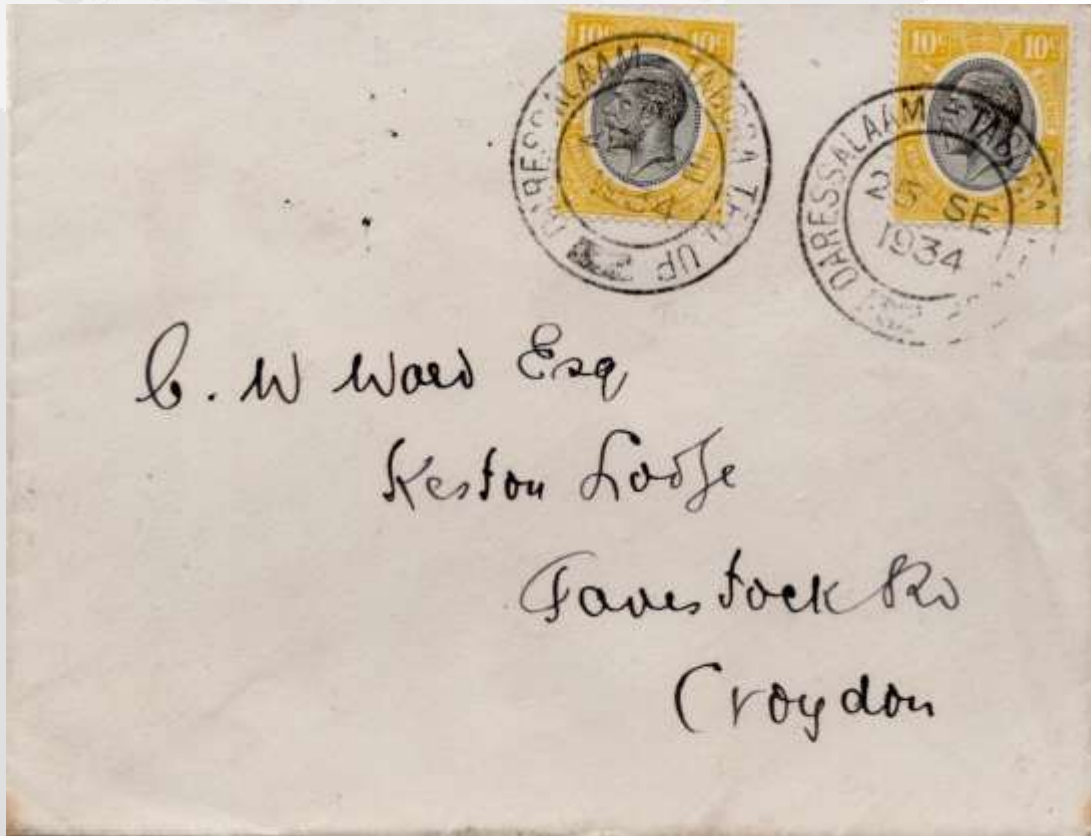 10c 10c
10c 10c
DARESSALAAM - TABORA T.P.O. UP
1934
DARESSALAAM - TABORA
25 SE
1934
C. W Ward Esq
Keston Lodge
Tavistock Rd
Croydon